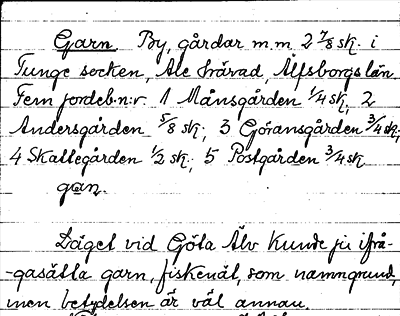 Garn By, gårdar m.m. 2 7/8 sk. i
Tunge socken, Ale härad, Älfsborgs län.
Fem jordeb.n:r. 1 Månsgården 1/4 sk, 2
Andersgården 5/8 sk; 3 Göransgården 3/4 sk;
4 Skattegården 1/2 sk; 5 Postgården 3/4 sk
gɑn.
Läget vid Göta Älv kunde ju ifrå-
-gasätta garn, fiskenät, som namngrund,
men betydelsen är väl annan.